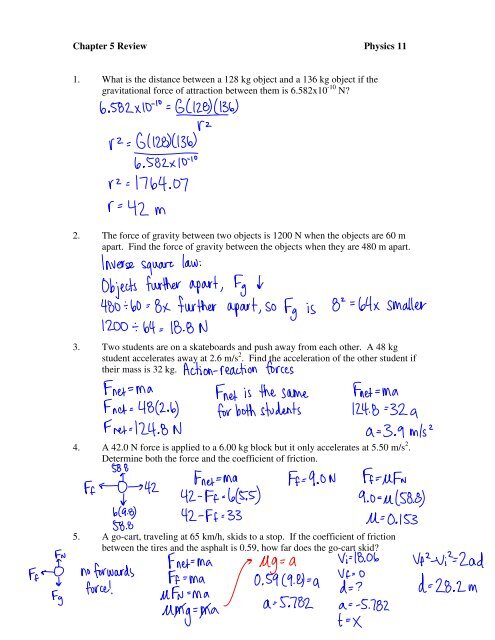 Chapter 5 Review Physics 11
1. What is the distance between a 128 kg object and a 136 kg object if the
gravitational force of attraction between them is 6.582x10⁻¹⁰ N?
6.582x10⁻¹⁰ = G(128)(136)
r²
r² = G(128)(136)
6.582x10⁻¹⁰
r² = 1764.07
r = 42 m
2. The force of gravity between two objects is 1200 N when the objects are 60 m
apart. Find the force of gravity between the objects when they are 480 m apart.
Inverse square law:
Objects further apart, Fg ↓
480 ÷ 60 = 8x further apart, so Fg is 8² = 64x smaller
1200 ÷ 64 = 18.8 N
3. Two students are on a skateboards and push away from each other. A 48 kg
student accelerates away at 2.6 m/s². Find the acceleration of the other student if
their mass is 32 kg. Action-reaction forces
Fnet = ma Fnet is the same Fnet = ma
Fnet = 48(2.6) for both students 124.8 = 32a
Fnet = 124.8 N a = 3.9 m/s²
4. A 42.0 N force is applied to a 6.00 kg block but it only accelerates at 5.50 m/s².
Determine both the force and the coefficient of friction.
58.8
Ff 42
6(9.8)
58.8
Fnet = ma Ff = 9.0 N Ff = μFN
42 - Ff = 6(5.5) 9.0 = μ(58.8)
42 - Ff = 33 μ = 0.153
5. A go-cart, traveling at 65 km/h, skids to a stop. If the coefficient of friction
between the tires and the asphalt is 0.59, how far does the go-cart skid?
FN
Ff
Fg
no forwards
force!
Fnet = ma
Ff = ma
μFN = ma
μmg = ma
μg = a
0.59(9.8) = a
a = 5.782
Vi = 18.06
Vf = 0
d = ?
a = -5.782
t = x
Vf² - Vi² = 2ad
d = 28.2 m